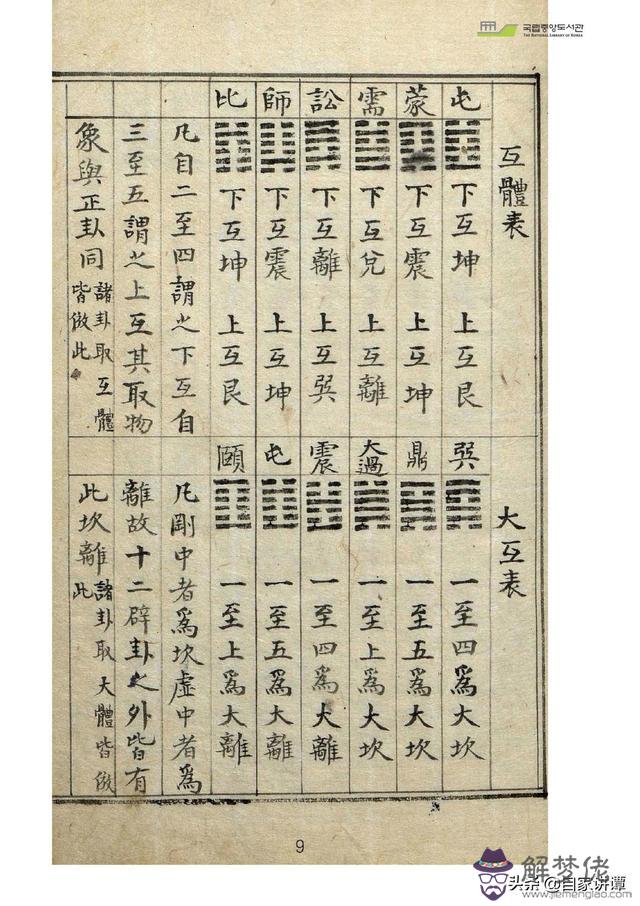 국립중앙도서관
THE NATIONAL LIBRARY OF KOREA
互體表
屯 下互坤 上互艮
蒙 下互震 上互坤
需 下互兌 上互離
訟 下互離 上互巽
師 下互震 上互坤
比 下互坤 上互艮
凡自二至四謂之下互自
三至五謂之上互其取物
象與正卦同 諸卦取互體皆倣此
大互表
巽 一至四爲大坎
鼎 一至五爲大坎
大過 一至上爲大坎
震 一至四爲大離
屯 一至五爲大離
頤 一至上爲大離
凡剛中者爲坎虛中者爲
離故十二辟卦之外皆有
此坎離 諸卦取大體皆倣此
9
解梦佬
www.jiemenglao.com
头条 @自家讲谭